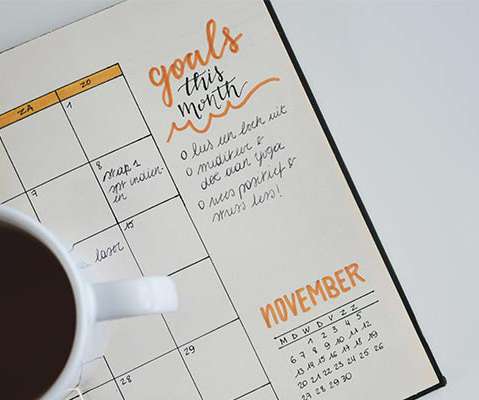 goals
this
month
o lees een boek uit
o mediteer &
doe aan yoga
o wees positief &
stress less!
ZA ZO
1
8
stap 1
9
15
laser
28
29
NOVEMBER
M D W D V Z Z
1 2 3 4 5
6 7 8 9 10 11 12
13 14 15 16 17 18 19
20 21 22 23 24 25 26
27 28 29 30